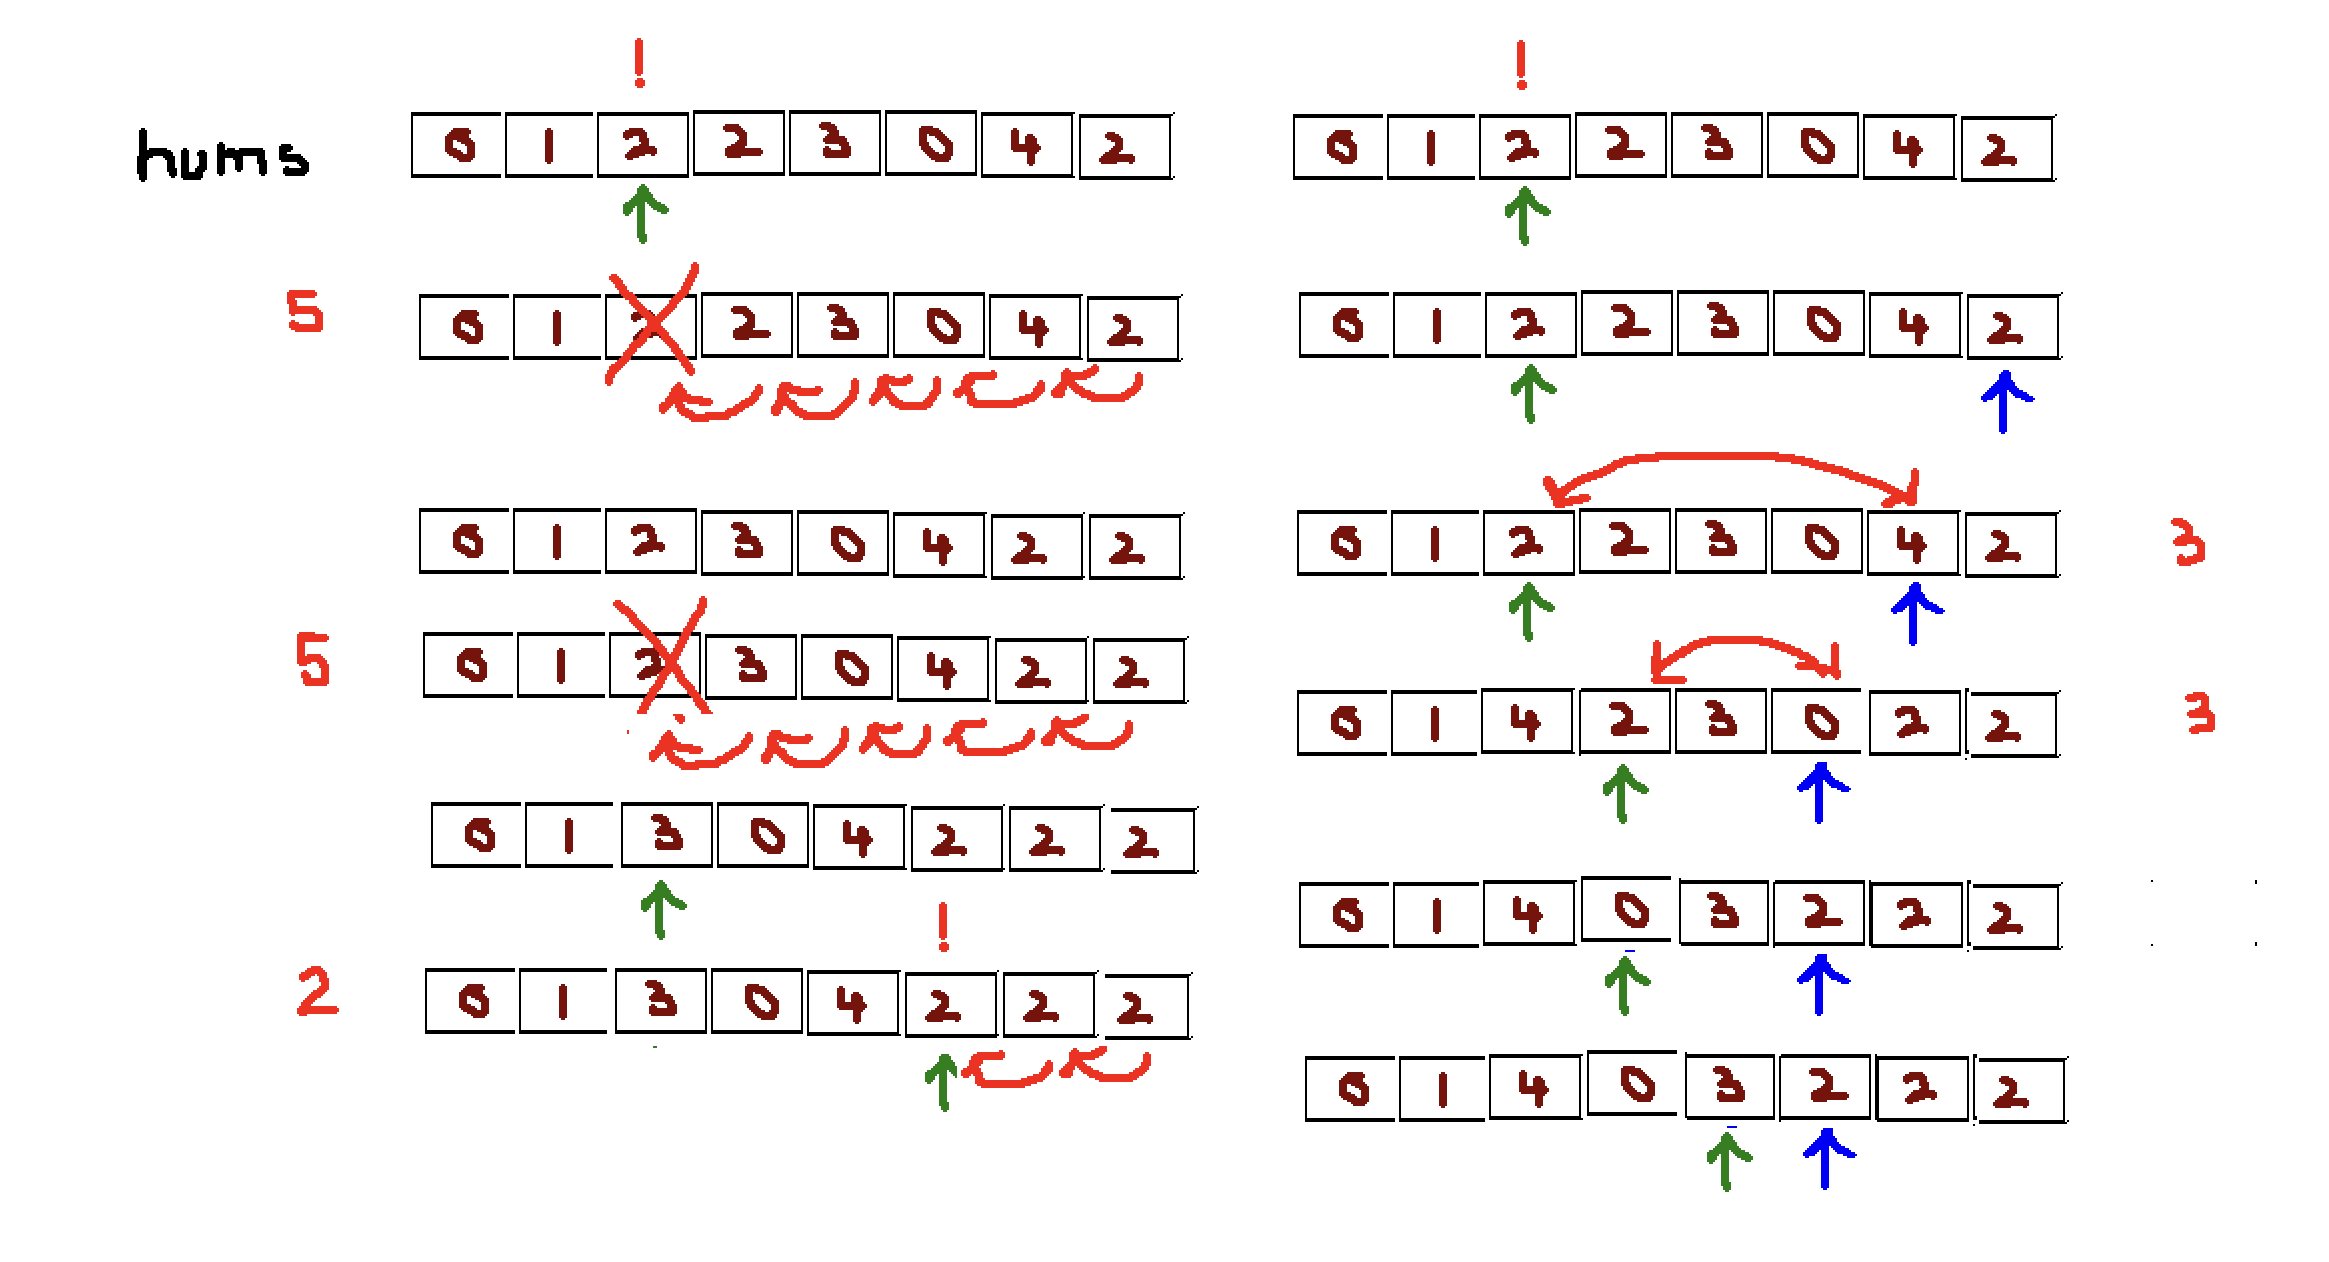 !
hums 0 1 2 2 3 0 4 2
5 0 1 2 2 3 0 4 2
0 1 2 3 0 4 2 2
5 0 1 2 3 0 4 2 2
0 1 3 0 4 2 2 2
!
2 0 1 3 0 4 2 2 2
!
0 1 2 2 3 0 4 2
0 1 2 2 3 0 4 2
0 1 2 2 3 0 4 2 3
0 1 4 2 3 0 2 2 3
0 1 4 0 3 2 2 2
0 1 4 0 3 2 2 2